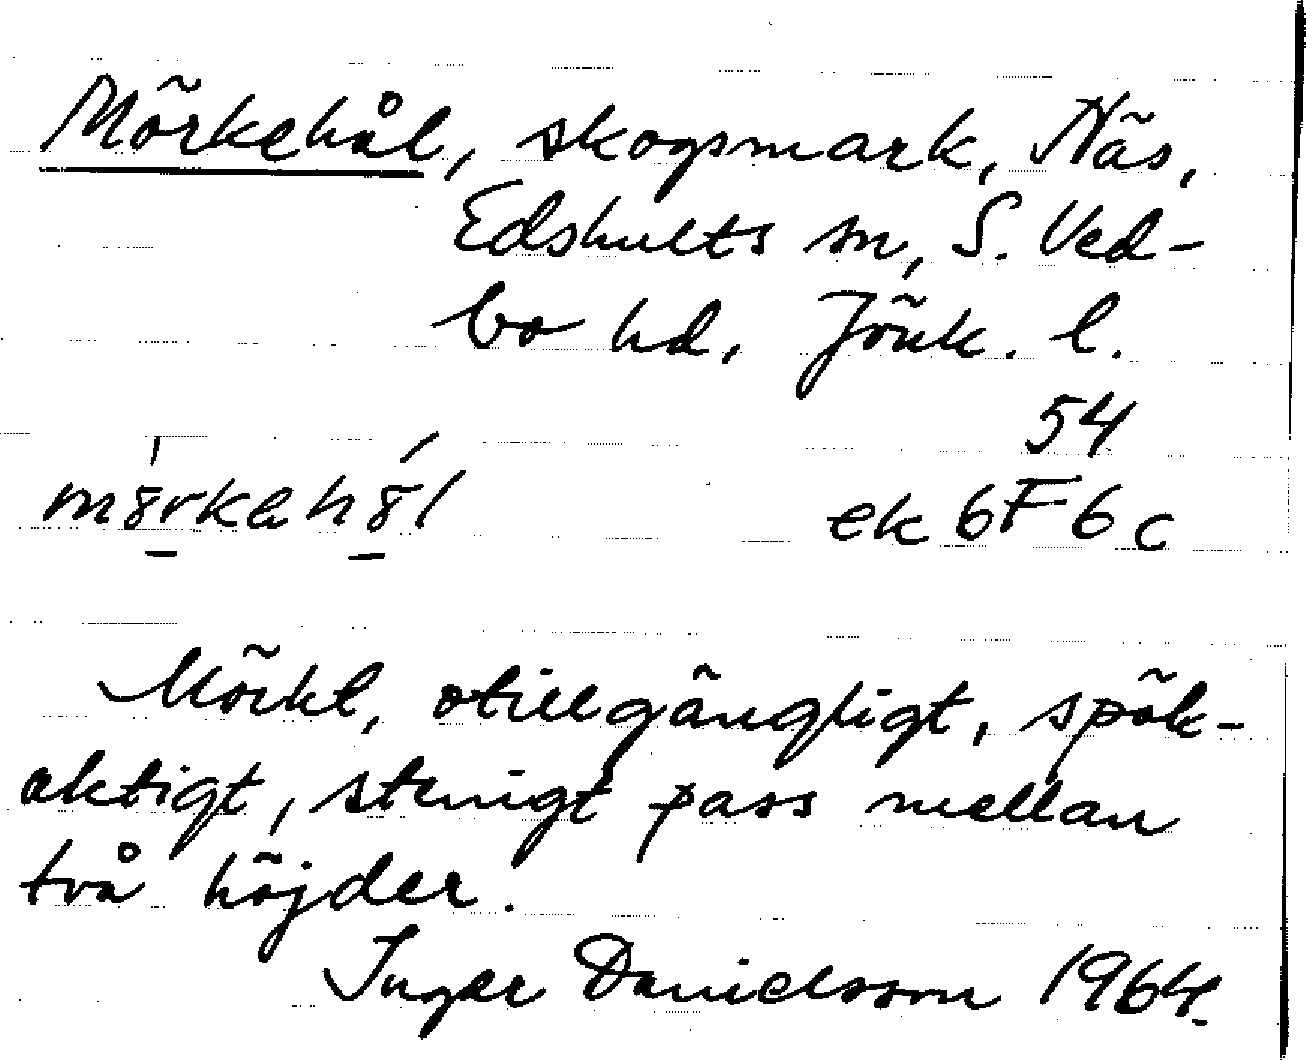 Mörkehål, skogsmark, Näs,
Edshults sn, S. Ved-
bo hd, Jönk. l.
54
ek 6F6c
Mörkt, otillgängligt, spök-
aktigt, stenigt pass mellan
två höjder.
Inger Danielsson 1964.